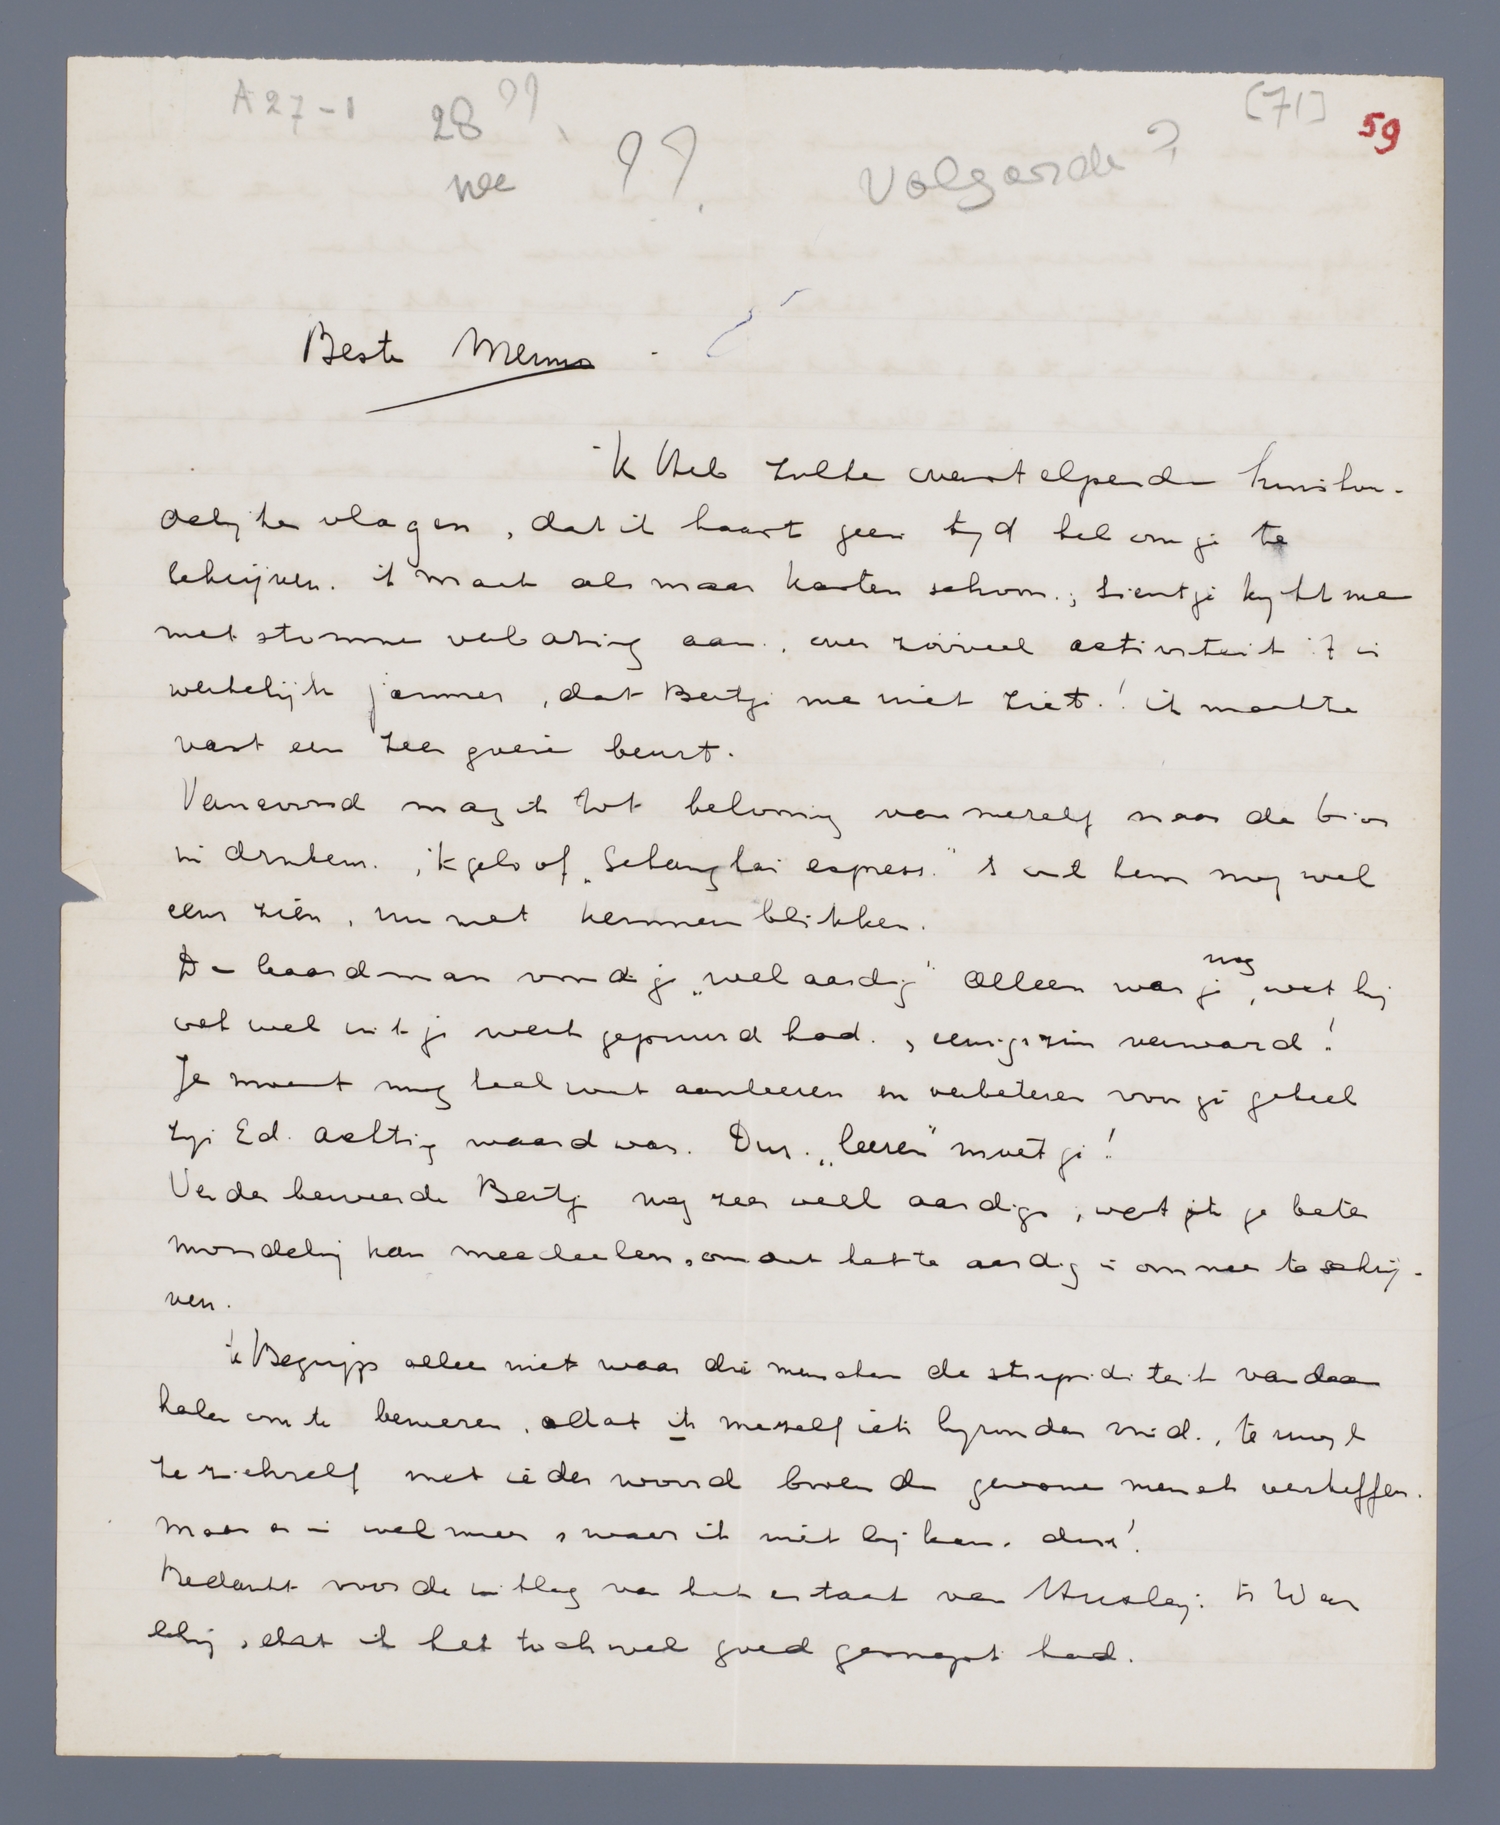 A27-1 28 ?? [71] 59
nee ?? Volgorde?
Beste Menno
'k Heb zulke overstelpende huishou-
delijke vlagen, dat ik haast geen tyd heb om je te
schrijven. ik maak als maar kasten schoon.; Sientje kykt me
met stomme verbazing aan., over zóóveel activiteit 't is
werkelijk jammer, dat Bertje me niet ziet.! ik maakte
vast een zeer goeie beurt.
Vanavond mag ik tot belooning van mezelf naar de bios
in Arnhem. , ik geloof „Schanghai express." 'k wil hem nog wel
eens zien, nu met kennersblikken.
De baardman vond je „wel aardig" Alleen was je nog, wat hij
ook wel uit je werk gepuurd had. , eenigszins verward!
Je moest nog heel wat aanleeren en verbeteren voor je geheel
zyn Ed. achting waard was. Dus. „leeren" moet je!
Verder beweerde Bertje nog zeer veel aardigs, wat ik je beter
mondeling kan meedeelen, omdat het te aardig is om neer te schrij-
ven.
'k Begrijp alleen niet waar die menschen de stupiditeit vandaan
halen om te beweren, dat ik mezelf iets byzonders vind.,
ze zichzelf met ieder woord boven de gewone mensch verheffen.
Maar er is wel meer, waar ik niet bij kan. dus!
Bedankt voor de uitleg van het van Huxley: 'k Was
blij, dat ik het toch wel goed gesnapt had.